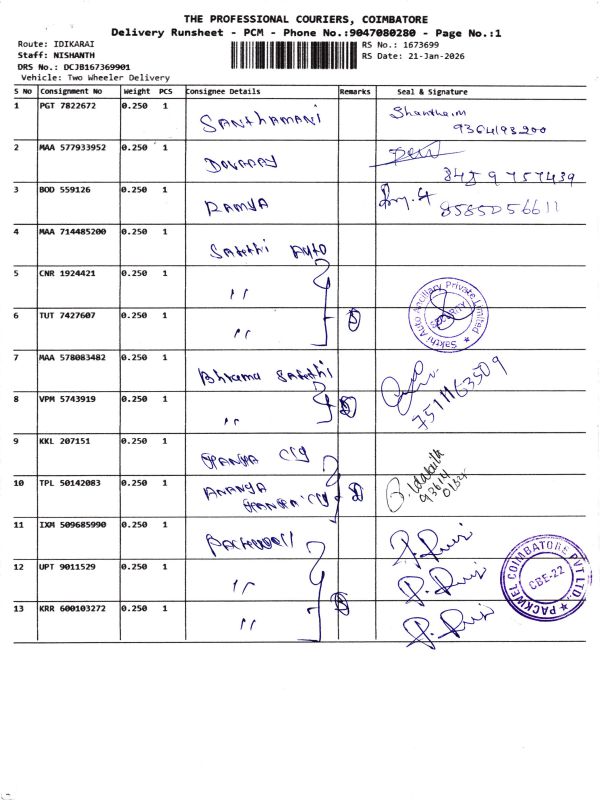 THE PROFESSIONAL COURIERS, COIMBATORE
Delivery Runsheet - PCM - Phone No.:9047080280 - Page No.:1
Route: IDIKARAI
RS No.: 1673699
Staff: NISHANTH
RS Date: 21-Jan-2026
DRS No.: DCJB167369901
Vehicle: Two Wheeler Delivery
S No Consignment No Weight PCS Consignee Details Remarks Seal & Signature
1 PGT 7822672 0.250 1 SANTHAMANI Shanthi
9364193200
2 MAA 577933952 0.250 1
8459757439
3 BOD 559126 0.250 1 RAMYA
8585056611
4 MAA 714485200 0.250 1 Sakthi AUTO
5 CNR 1924421 0.250 1 ''
6 TUT 7427607 0.250 1 ''
Sakthi Auto Ancillary Private Limited
SECURITY
7 MAA 578083482 0.250 1 Sakthi
7511163509
8 VPM 5743919 0.250 1 ''
9 KKL 207151 0.250 1
10 TPL 50142083 0.250 1 ANANYA
11 IXM 509685990 0.250 1
12 UPT 9011529 0.250 1 ''
13 KRR 600103272 0.250 1 ''
PACKWEL COIMBATORE PVT LTD.
CBE-22